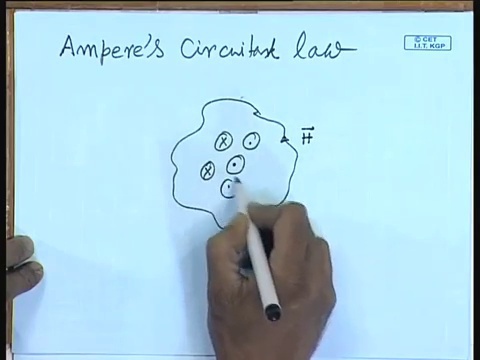 Ampere's Circuital law
© CET
I.I.T. KGP
H
x
x